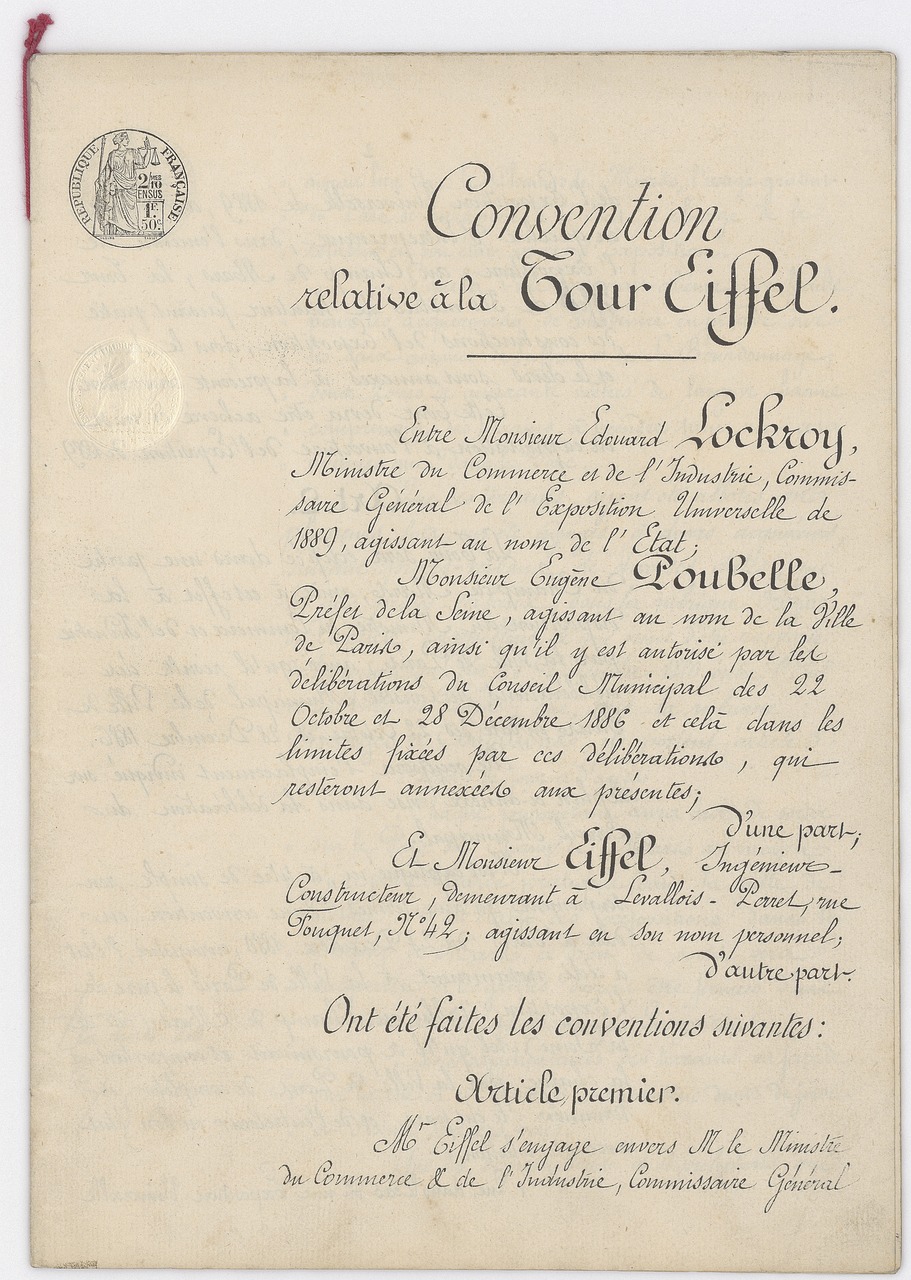 RÉPUBLIQUE FRANÇAISE
2/10
EN SUS
1F
50c
Convention
relative à la Tour Eiffel.
Entre Monsieur Edouard Lockroy,
Ministre du Commerce et de l'Industrie, Commis-
saire Général de l'Exposition Universelle de
1889, agissant au nom de l'Etat;
Monsieur Eugène Poubelle,
Préfet de la Seine, agissant au nom de la Ville
de Paris, ainsi qu'il y est autorisé par les
délibérations du Conseil Municipal des 22
Octobre et 28 Décembre 1886 et celà dans les
limites fixées par ces délibérations, qui
resteront annexées aux présentes;
d'une part;
Et Monsieur Eiffel, Ingénieur-
Constructeur, demeurant à Levallois-Perret, rue
Fouquet, No 42; agissant en son nom personnel;
d'autre part.
Ont été faites les conventions suivantes:
Article premier.
Mr Eiffel s'engage envers M le Ministre
du Commerce & de l'Industrie, Commissaire Général